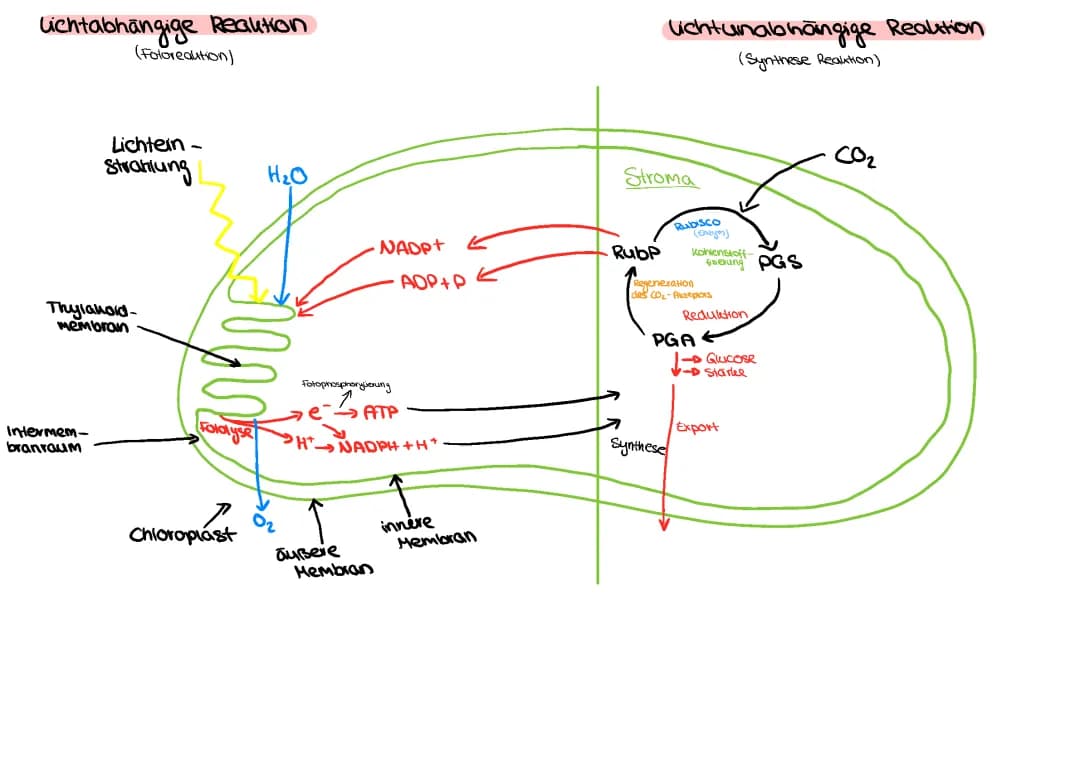 Lichtabhängige Reaktion
(Fotoreaktion)
Lichtunabhängige Reaktion
(Synthese Reaktion)
Lichtein-
Strahlung
H₂O
CO₂
Stroma
NADP+
ADP+P
RubP
Rubisco
(Enzym)
Kohlenstoff-
fixierung
PGS
Regeneration
des CO₂-Akzeptors
Reduktion
PGA
→ Glucose
→ Stärke
Thylakoid-
membran
Fotophosphorylierung
e⁻ → ATP
Fotolyse
H⁺ → NADPH + H⁺
Export
Synthese
Intermem-
branraum
Chloroplast
O₂
äußere
Membran
innere
Membran